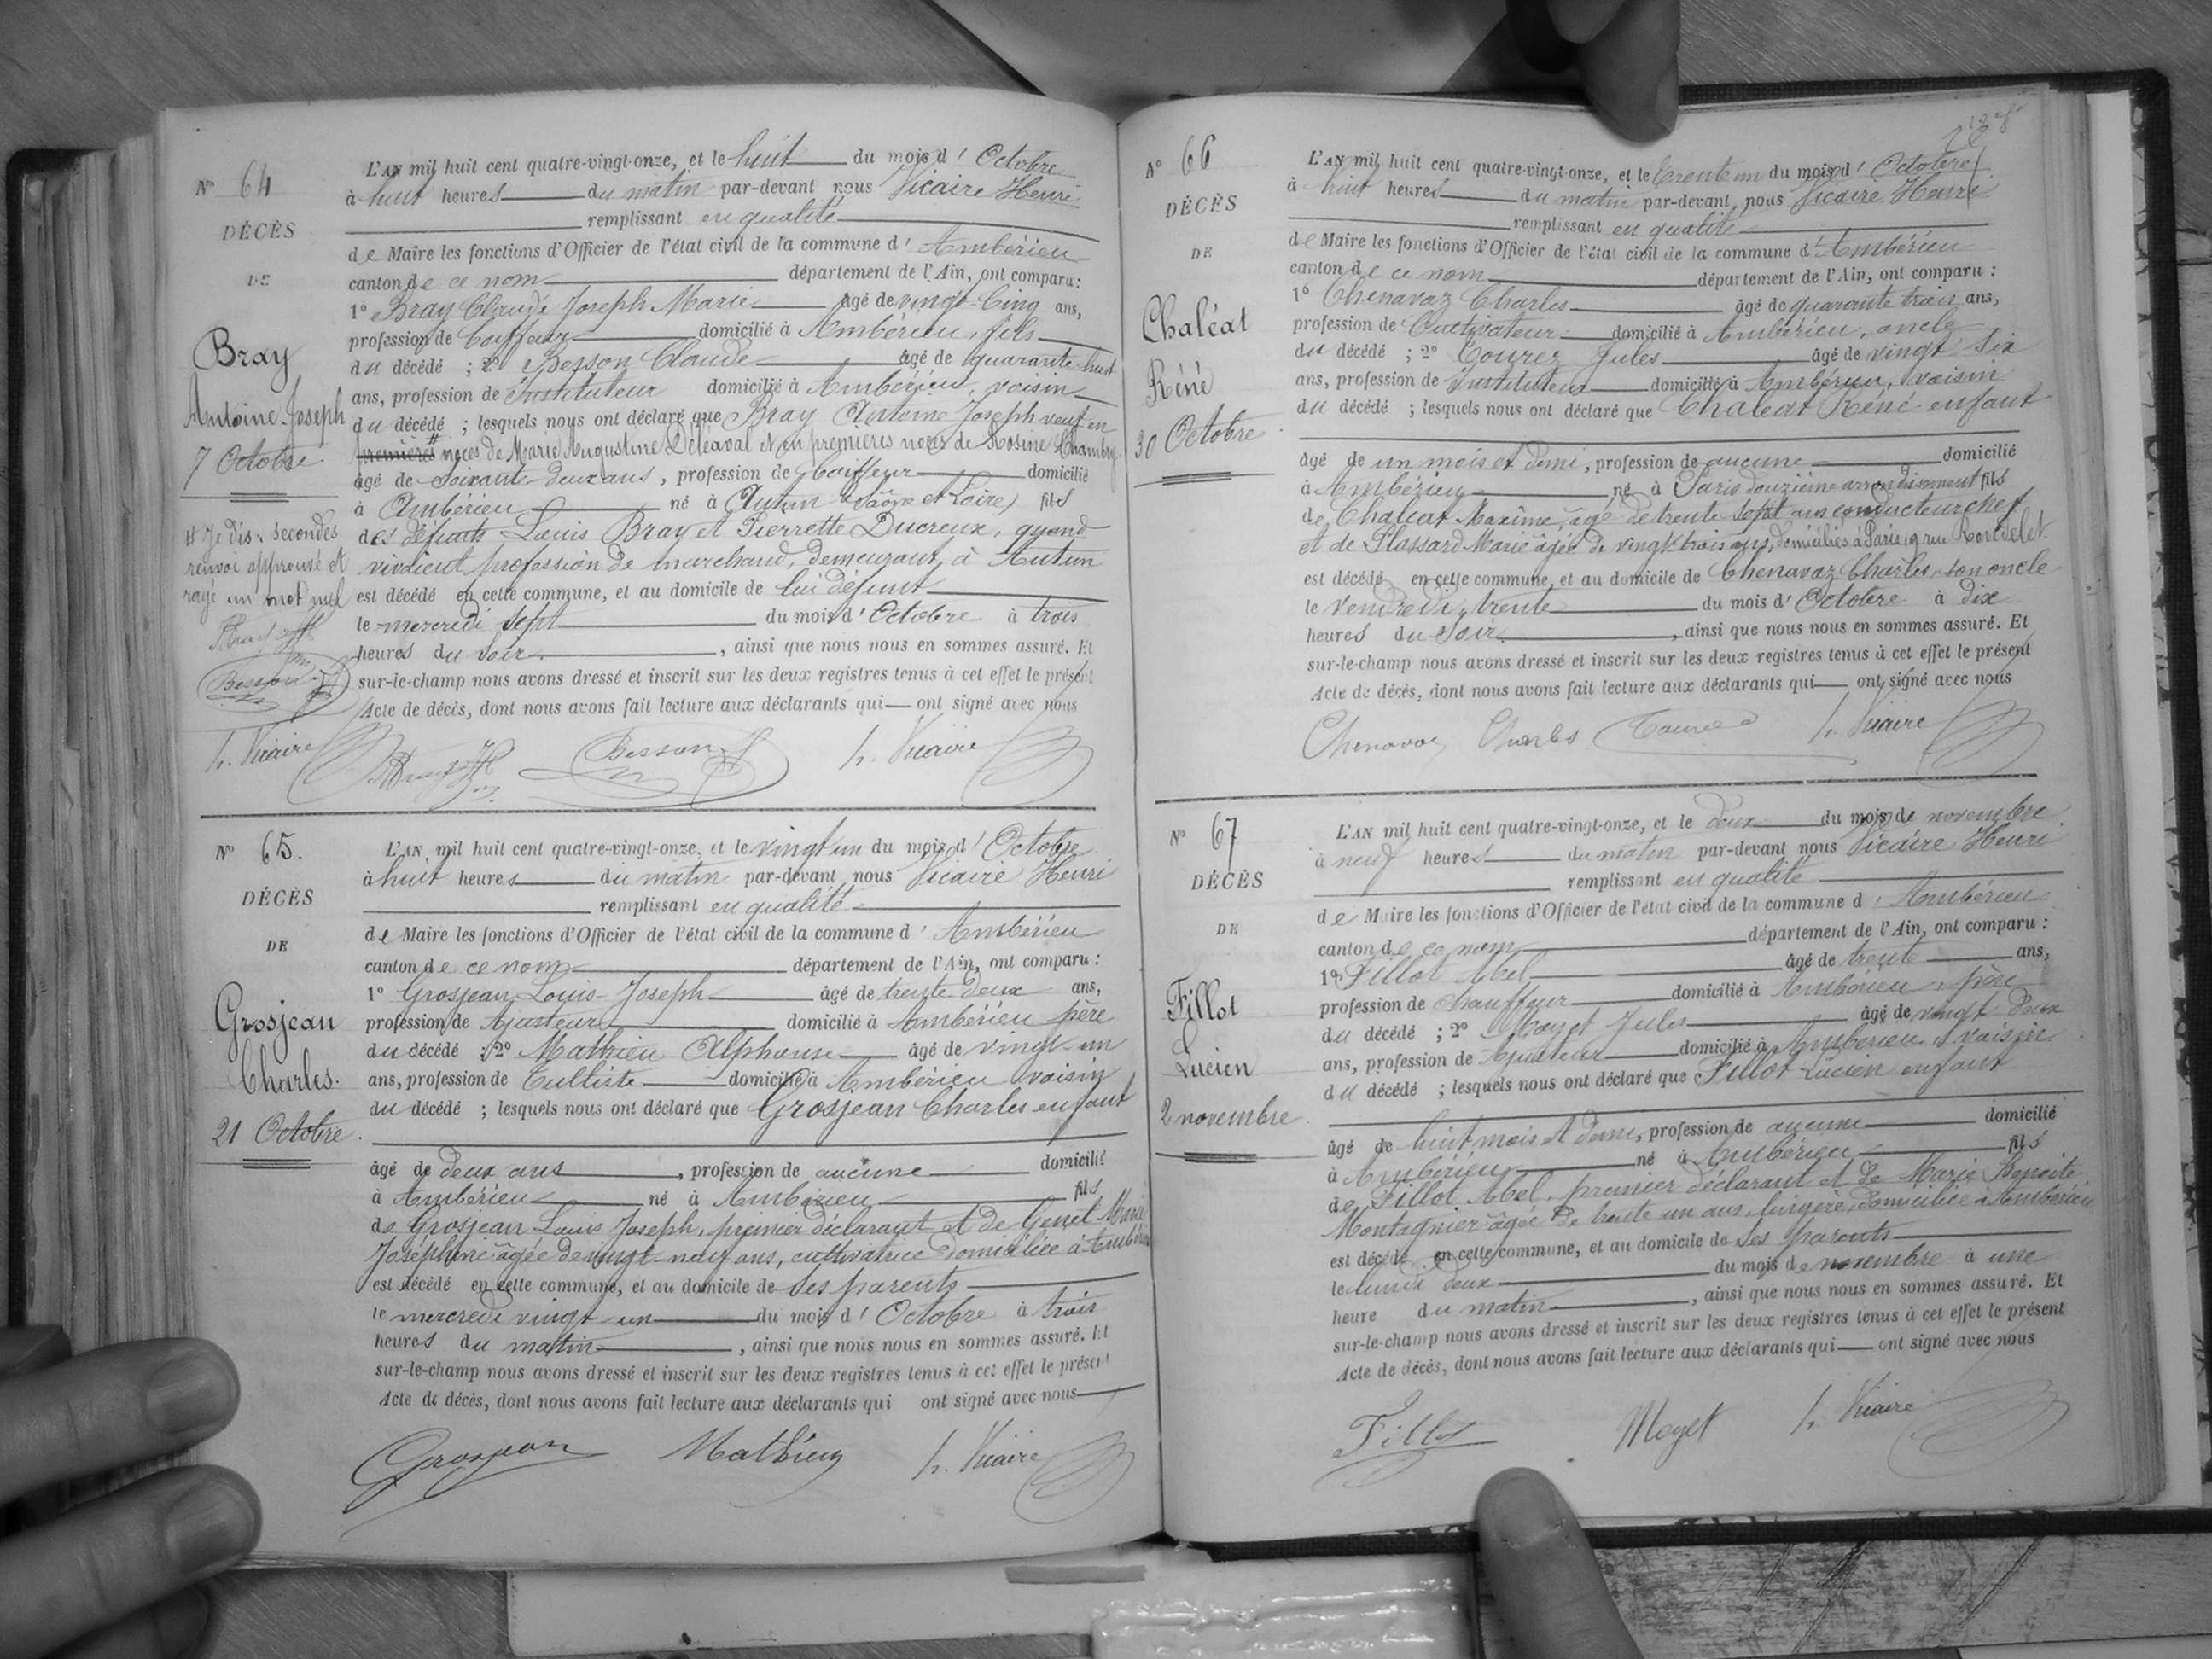 N° 64
DÉCÈS
DE
Bray
Antoine Joseph
7 Octobre
# Je dis : secondes
renvoi approuvé et
rayé un mot nul
Besson
h. Vicaire
L'AN mil huit cent quatre-vingt-onze, et le huit du mois d' Octobre
à huit heures du matin par-devant nous Vicaire Henri
remplissant en qualité
de Maire les fonctions d'Officier de l'état civil de la commune d' Ambérieu
canton de ce nom département de l'Ain, ont comparu :
1° Bray Claude Joseph Marie âgé de vingt-cinq ans,
profession de Coiffeur domicilié à Ambérieu, fils
du décédé ; 2° Besson Claude âgé de quarante-huit
ans, profession de Instituteur domicilié à Ambérieu, voisin
du décédé ; lesquels nous ont déclaré que Bray Antoine Joseph veuf en
premières # noces de Marie Augustine Déléaval et en premières noces de Rosine Chambry
âgé de Soixante-deux ans, profession de Coiffeur domicilié
à Ambérieu né à Autun (Saône et Loire) fils
des défunts Louis Bray et Pierrette Ducreux, quand
vivaient profession de marchand, demeurant à Autun
est décédé en cette commune, et au domicile de lui défunt
le mercredi sept du mois d' Octobre à trois
heures du soir, ainsi que nous nous en sommes assuré. Et
sur-le-champ nous avons dressé et inscrit sur les deux registres tenus à cet effet le présent
Acte de décès, dont nous avons fait lecture aux déclarants qui ont signé avec nous
Besson h. Vicaire
N° 65.
DÉCÈS
DE
Grosjean
Charles.
21 Octobre.
L'AN mil huit cent quatre-vingt-onze, et le vingt un du mois d' Octobre
à huit heures du matin par-devant nous Vicaire Henri
remplissant en qualité
de Maire les fonctions d'Officier de l'état civil de la commune d' Ambérieu
canton de ce nom département de l'Ain, ont comparu :
1° Grosjean Louis-Joseph âgé de trente deux ans,
profession de Ajusteur domicilié à Ambérieu père
du décédé ; 2° Mathieu Alphonse âgé de vingt-un
ans, profession de Tulliste domicilié à Ambérieu voisin
du décédé ; lesquels nous ont déclaré que Grosjean Charles enfant
âgé de deux ans, profession de aucune domicilié
à Ambérieu né à Ambérieu fils
de Grosjean Louis Joseph, premier déclarant et de Genet Marie
Joséphine âgée de vingt-neuf ans, cultivatrice domiciliée à Ambérieu
est décédé en cette commune, et au domicile de ses parents
le mercredi vingt-un du mois d' Octobre à trois
heures du matin, ainsi que nous nous en sommes assuré. Et
sur-le-champ nous avons dressé et inscrit sur les deux registres tenus à cet effet le présent
Acte de décès, dont nous avons fait lecture aux déclarants qui ont signé avec nous
Grosjean Mathieu h. Vicaire
N° 66
DÉCÈS
DE
Chaléat
Réné
30 Octobre
L'AN mil huit cent quatre-vingt-onze, et le trente un du mois d' Octobre
à huit heures du matin par-devant nous Vicaire Henri
remplissant en qualité
de Maire les fonctions d'Officier de l'état civil de la commune d' Ambérieu
canton de ce nom département de l'Ain, ont comparu :
1° Chenavaz Charles âgé de quarante trois ans,
profession de Cultivateur domicilié à Ambérieu, oncle
du décédé ; 2° Jules âgé de vingt-six
ans, profession de Instituteur domicilié à Ambérieu, voisin
du décédé ; lesquels nous ont déclaré que Chaléat Réné enfant
âgé de un mois et demi, profession de aucune domicilié
à Ambérieu né à Paris douzième arrondissement fils
de Chaléat Maxime, âgé de trente sept ans conducteur chef
et de Marie âgée de vingt trois ans, domiciliés à Paris, 9 rue Rondelet
est décédé en cette commune, et au domicile de Chenavaz Charles, son oncle
le Vendredi, trente du mois d' Octobre à dix
heures du soir, ainsi que nous nous en sommes assuré. Et
sur-le-champ nous avons dressé et inscrit sur les deux registres tenus à cet effet le présent
Acte de décès, dont nous avons fait lecture aux déclarants qui ont signé avec nous
Chenavaz Charles h. Vicaire
N° 67
DÉCÈS
DE
Fillot
Lucien
2 novembre
L'AN mil huit cent quatre-vingt-onze, et le deux du mois de novembre
à neuf heures du matin par-devant nous Vicaire Henri
remplissant en qualité
de Maire les fonctions d'Officier de l'état civil de la commune d' Ambérieu
canton de ce nom département de l'Ain, ont comparu :
1° Fillot Abel âgé de trente ans,
profession de chauffeur domicilié à Ambérieu, père
du décédé ; 2° Moyet Jules âgé de vingt-deux
ans, profession de Ajusteur domicilié à Ambérieu, voisin
du décédé ; lesquels nous ont déclaré que Fillot Lucien enfant
âgé de huit mois et demi, profession de aucune domicilié
à Ambérieu né à Ambérieu fils
de Fillot Abel, premier déclarant et de Marie Benoite
Montagnier âgée de trente un ans, lingère, domiciliée à Ambérieu
est décédé en cette commune, et au domicile de ses parents
le lundi deux du mois de novembre à une
heure du matin, ainsi que nous nous en sommes assuré. Et
sur-le-champ nous avons dressé et inscrit sur les deux registres tenus à cet effet le présent
Acte de décès, dont nous avons fait lecture aux déclarants qui ont signé avec nous
Fillot Moyet h. Vicaire